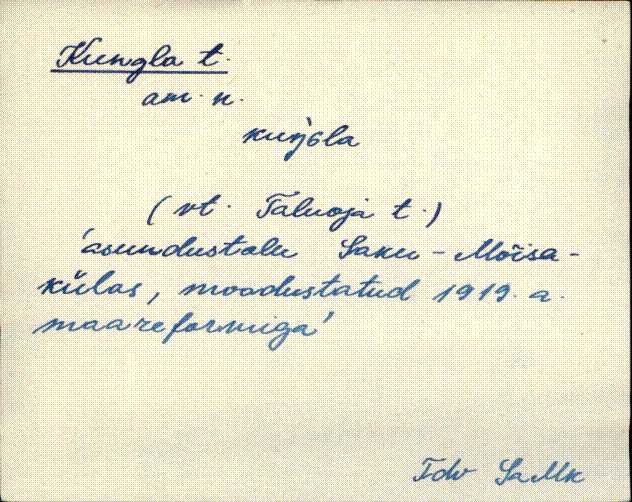 Kungla t.
am. n.
kuŋ̀Gla
(vt. Taluoja t.)
'asundustalu Saku-Mõisa-
külas, moodustatud 1919. a.
maareformiga'